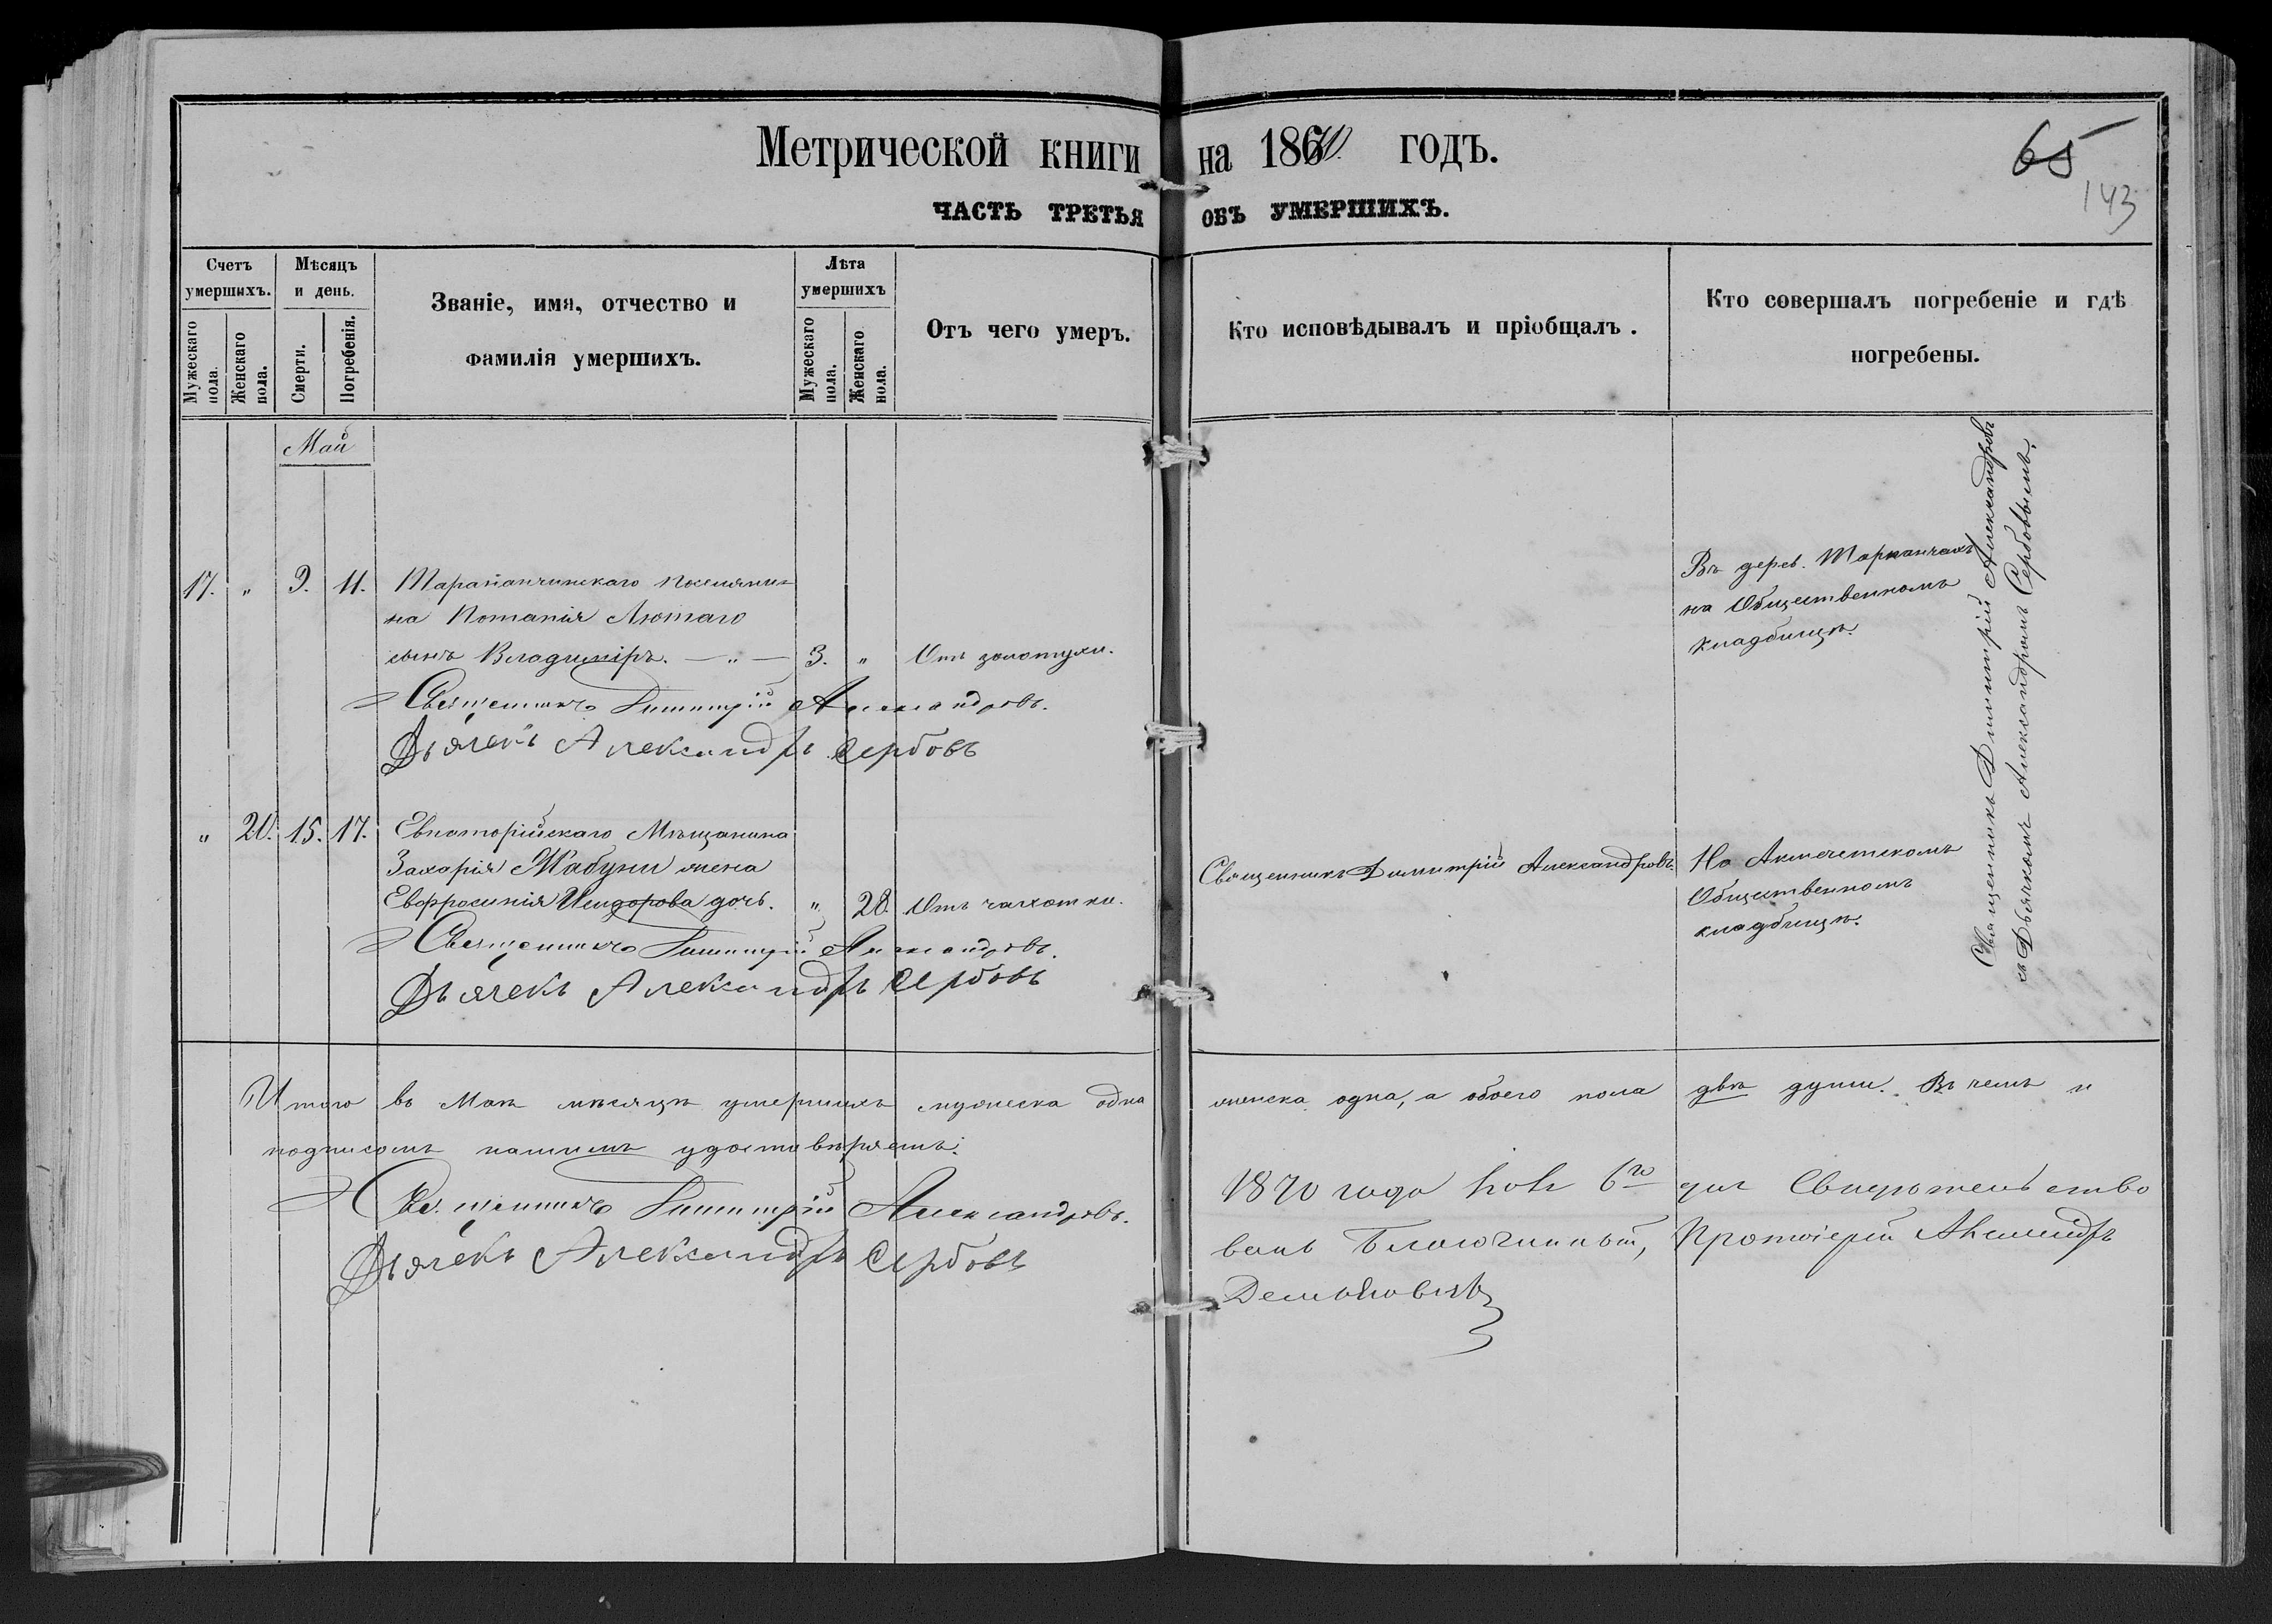 Метрической книги на 1870 годъ.
65
143
ЧАСТЬ ТРЕТЬЯ ОБЪ УМЕРШИХЪ.
Счетъ умершихъ.
Мужескаго пола.
Женскаго пола.
Мѣсяцъ и день.
Смерти.
Погребенія.
Званіе, имя, отчество и
фамилія умершихъ.
Лѣта умершихъ
Мужескаго пола.
Женскаго пола.
Отъ чего умеръ.
Кто исповѣдывалъ и пріобщалъ.
Кто совершалъ погребеніе и гдѣ
погребены.
Май
17. " 9. 11. поселяни-
на Потапія Лютаго
сынъ Владиміръ. — " — 3. " Отъ золотухи.
Въ дерев. Тарханчахъ
на Общественномъ
кладбищѣ.
Священникъ Димитрій Александровъ.
Дьячекъ Александръ Сербовъ
" 20. 15. 17. Евпаторійскаго Мѣщанина
Захарія Жабуни жена
Евфросинія Исидорова дочь. " 28. Отъ чахотки.
Священникъ Димитрій Александровъ.
На Акмечетскомъ
Общественномъ
кладбищѣ.
Священникъ Димитрій Александровъ.
Дьячекъ Александръ Сербовъ
Священникъ Димитрій Александровъ
съ Дьячкомъ Александромъ Сербовымъ.
Итого въ Маѣ мѣсяцѣ умершихъ мужеска одна женска одна, а обоего пола двѣ души. Въ чемъ и
подписомъ нашимъ удостовѣряемъ:
Священникъ Димитрій Александровъ.
Дьячекъ Александръ Сербовъ
1870 года 6го дня Свидѣтельство
валъ Благочинный, Протоіерей
Демьяновичъ